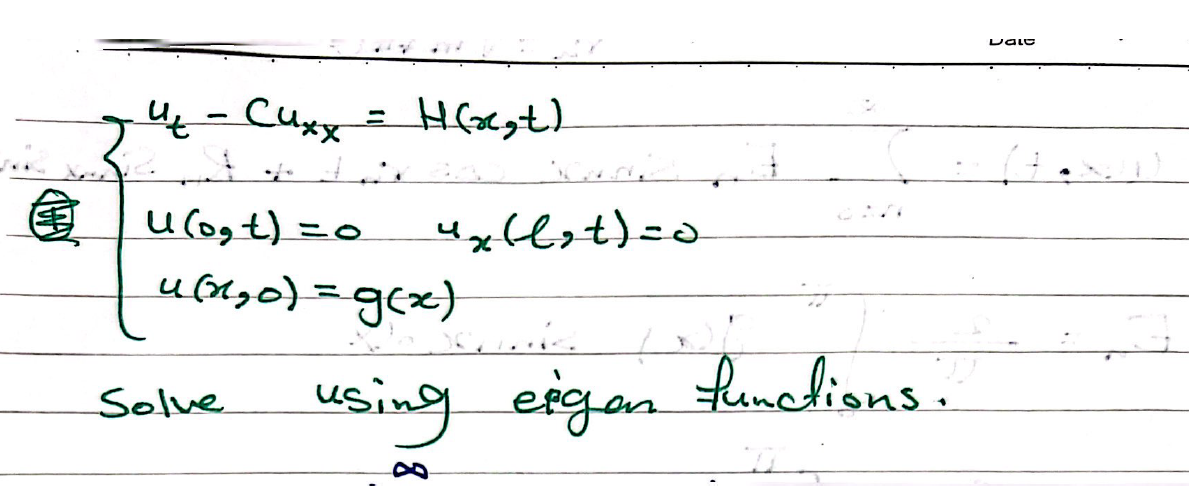 Date
u_t - Cu_xx = H(x,t)
u(0,t)=0 u_x(l,t)=0
u(x,0)=g(x)
Solve using eigen functions.
∞